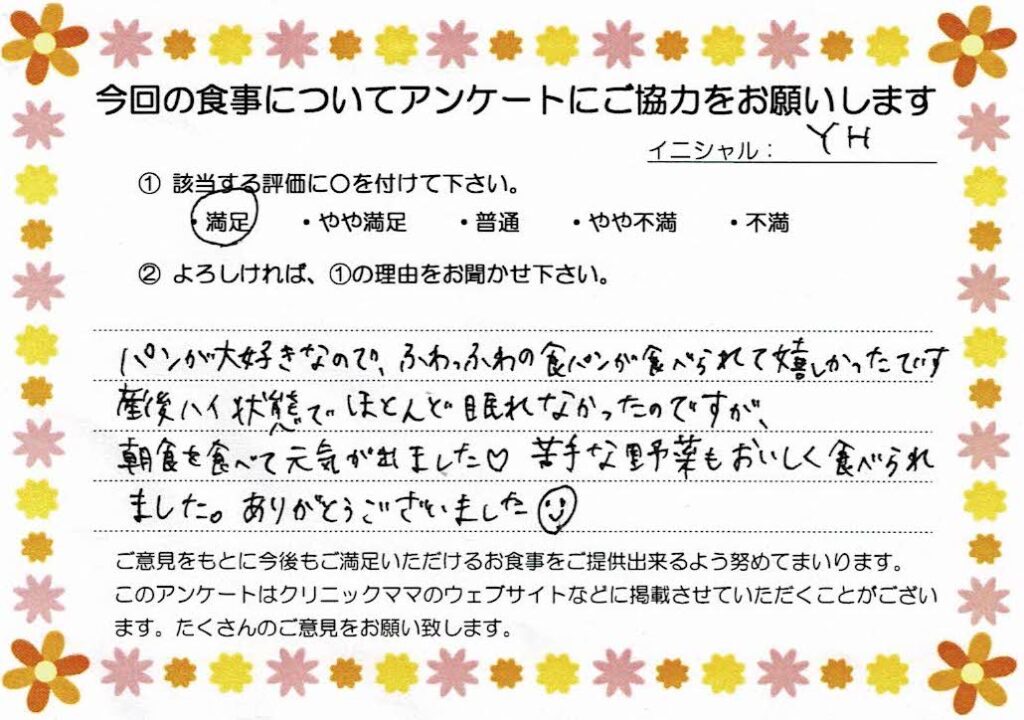 今回の食事についてアンケートにご協力をお願いします
イニシャル： YH
① 該当する評価に〇を付けて下さい。
・満足 ・やや満足 ・普通 ・やや不満 ・不満
② よろしければ、①の理由をお聞かせ下さい。
パンが大好きなので、ふわっふわの食パンが食べられて嬉しかったです
産後ハイ状態でほとんど眠れなかったのですが、
朝食を食べて元気が出ました♡ 苦手な野菜もおいしく食べられ
ました。ありがとうございました☺
ご意見をもとに今後もご満足いただけるお食事をご提供出来るよう努めてまいります。
このアンケートはクリニックママのウェブサイトなどに掲載させていただくことがござい
ます。たくさんのご意見をお願い致します。